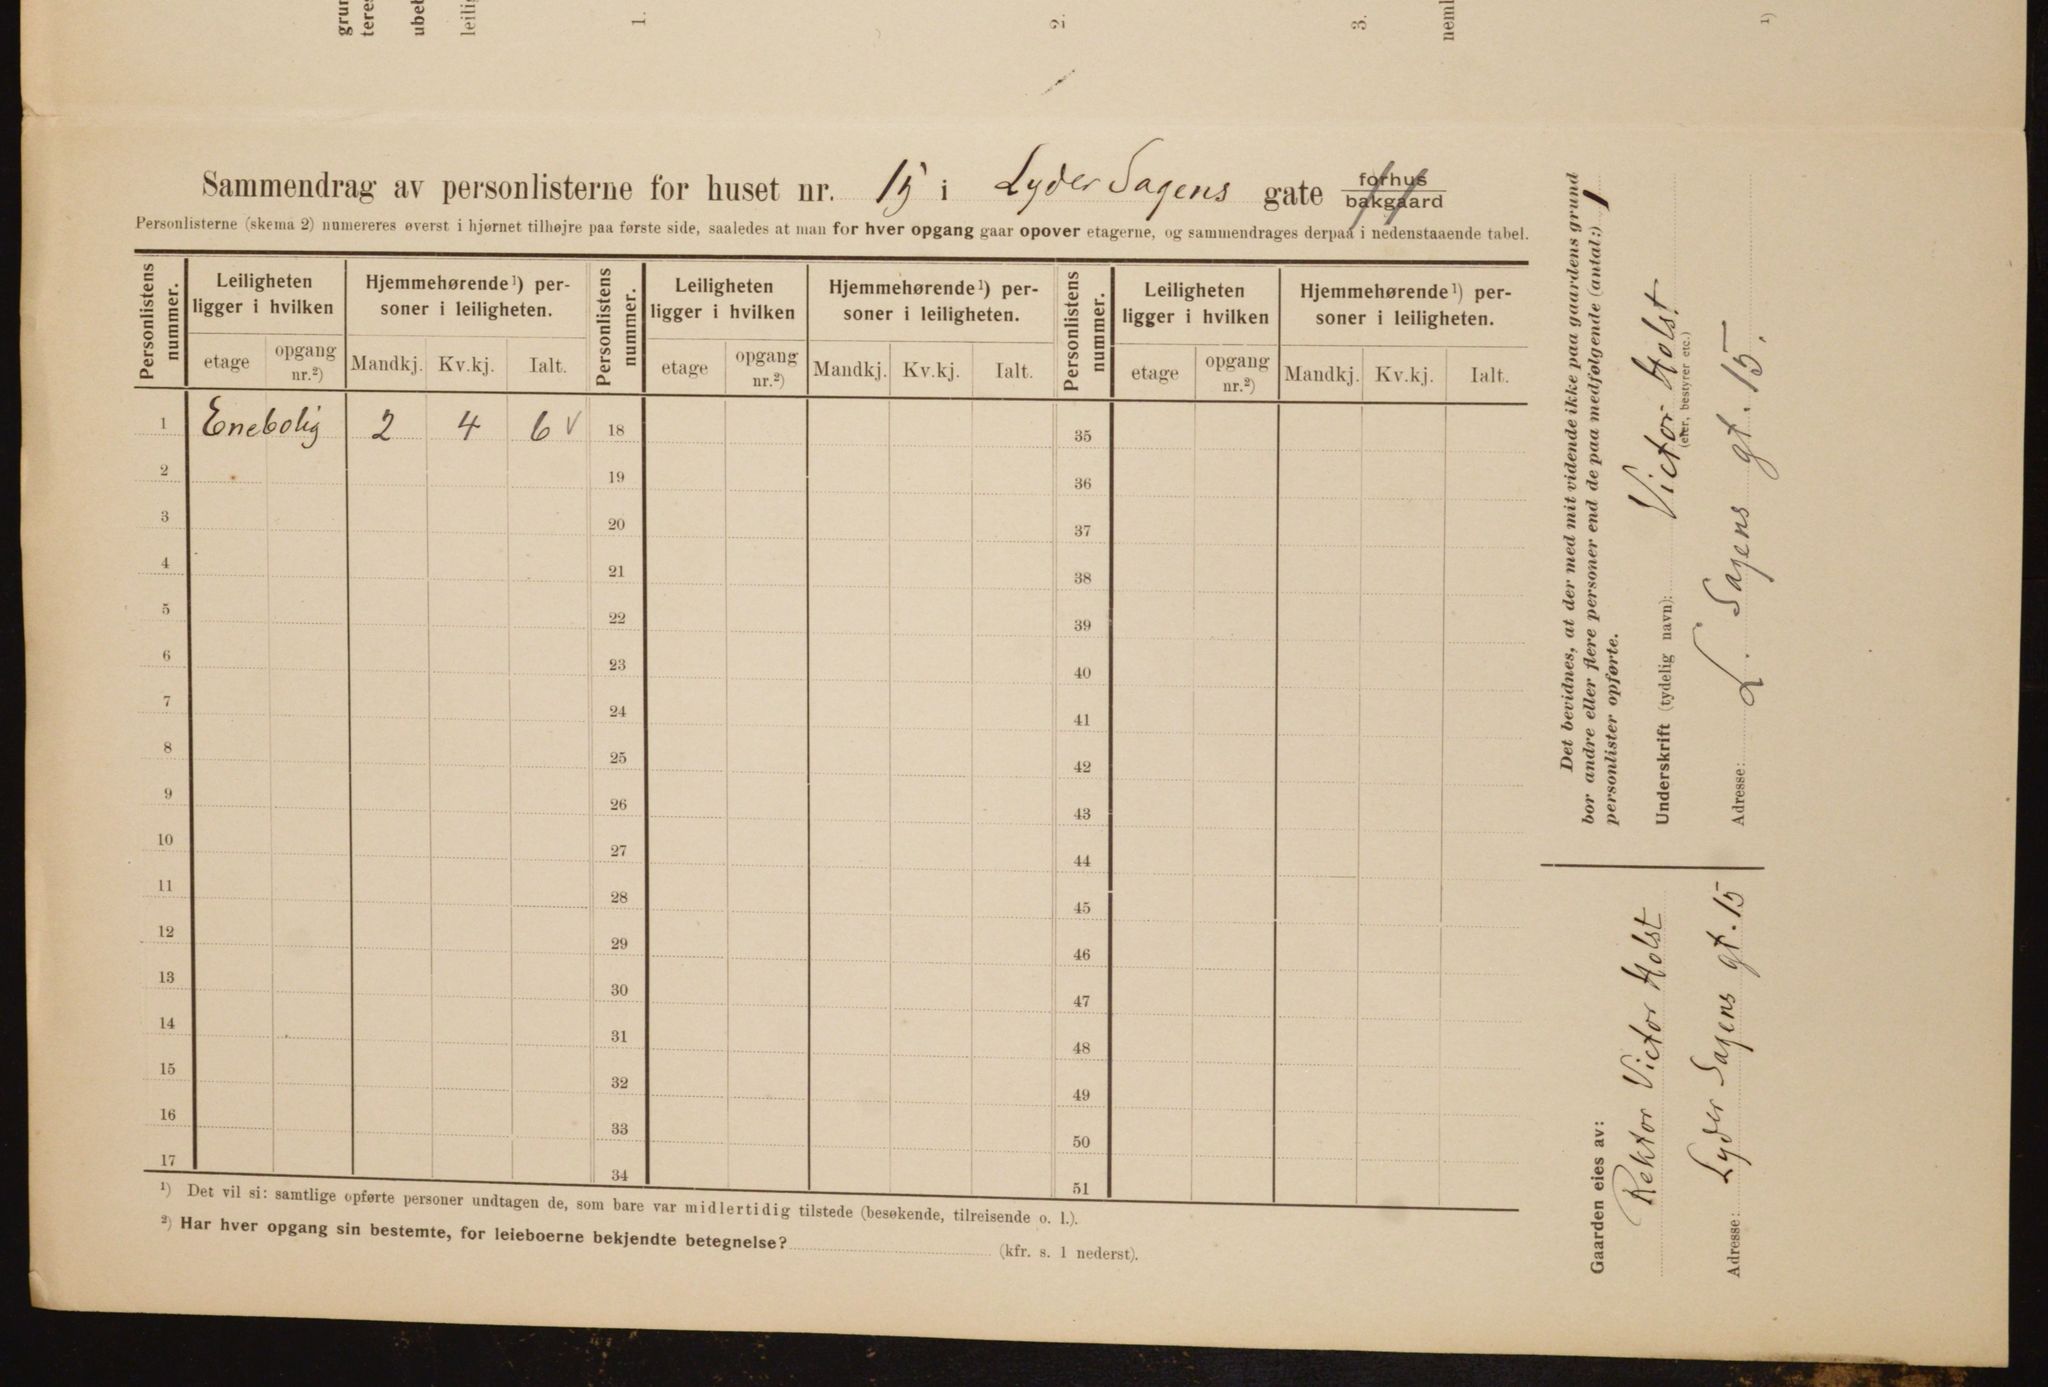 grun
teres
ubeb
leilig
1.
2.
3.
neml
1)
Sammendrag av personlisterne for huset nr. 15 i Lyder Sagens gate forhus bakgaard
Personlisterne (skema 2) numereres øverst i hjørnet tilhøjre paa første side, saaledes at man for hver opgang gaar opover etagerne, og sammendrages derpaa i nedenstaaende tabel.
Personlistens nummer. | Leiligheten ligger i hvilken | Hjemmehørende¹) personer i leiligheten. | Personlistens nummer. | Leiligheten ligger i hvilken | Hjemmehørende¹) personer i leiligheten. | Personlistens nummer. | Leiligheten ligger i hvilken | Hjemmehørende¹) personer i leiligheten.
etage | opgang nr.²) | Mandkj. | Kv.kj. | Ialt. | etage | opgang nr.²) | Mandkj. | Kv.kj. | Ialt. | etage | opgang nr.²) | Mandkj. | Kv.kj. | Ialt.
1 Enebolig 2 4 6 √ 18 35
2 19 36
3 20 37
4 21 38
5 22 39
6 23 40
7 24 41
8 25 42
9 26 43
10 27 44
11 28 45
12 29 46
13 30 47
14 31 48
15 32 49
16 33 50
17 34 51
¹) Det vil si: samtlige opførte personer undtagen de, som bare var midlertidig tilstede (besøkende, tilreisende o. l.).
²) Har hver opgang sin bestemte, for leieboerne bekjendte betegnelse? (kfr. s. 1 nederst).
Det bevidnes, at der med mit vidende ikke paa gaardens grund
bor andre eller flere personer end de paa medfølgende (antal:) 1
personlister opførte.
Underskrift (tydelig navn): Victor Holst
(eier, bestyrer etc.)
Adresse: L. Sagens gt. 15.
Gaarden eies av:
Rektor Victor Holst
Adresse: Lyder Sagens gt. 15